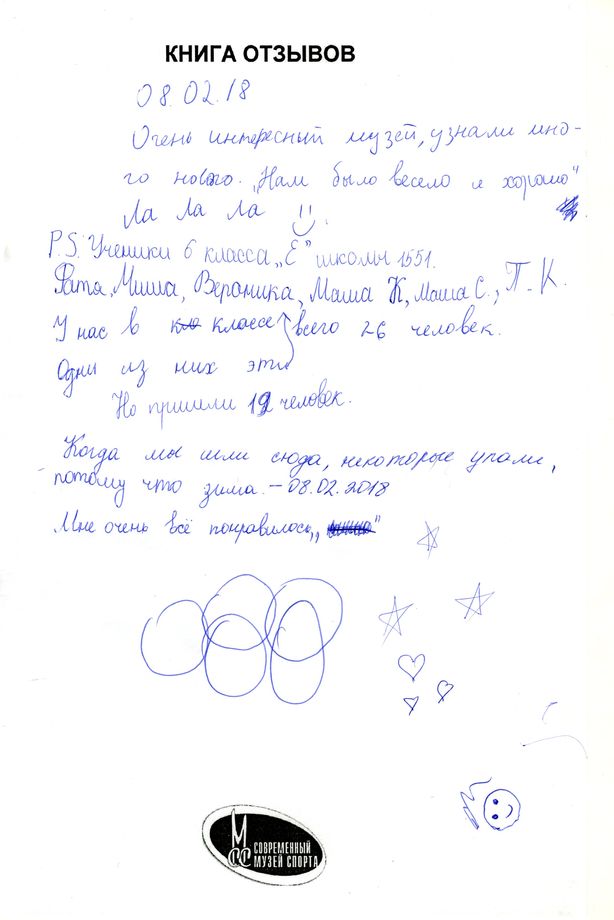 КНИГА ОТЗЫВОВ
08.02.18
Очень интересный музей, узнали мно-
го нового. „Нам было весело и хорошо"
Ла Ла Ла !!
P.S. Ученики 6 класса „Е" школы 1551.
Миша, Вероника, Маша К, Маша С., П.К.
У нас в кла классе всего 26 человек.
Одни из них эти
Но пришли 12 человек.
Когда мы шли сюда, некоторые упали,
потому что зима. – 08.02.2018
Мне очень всё понравилось
М
СС СОВРЕМЕННЫЙ
МУЗЕЙ СПОРТА